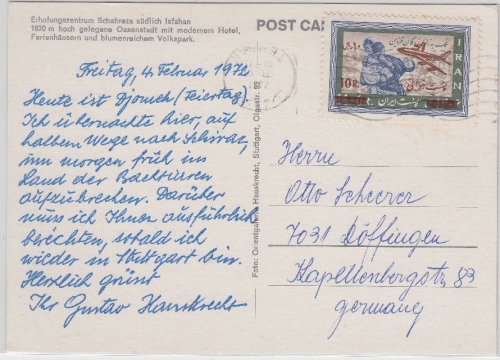 Erholungszentrum Schahreza südlich Isfahan
1820 m hoch gelegene Oasenstadt mit modernem Hotel,
Ferienhäusern und blumenreichem Volkspark.
POST CAR
Freitag, 4. Februar 1972
Heute ist Djomeh (Feiertag).
Ich übernachte hier, auf
halbem Wege nach Schiraz,
um morgen früh ins
Land der Bachtiaren
aufzubrechen. Darüber
muss ich Ihnen ausführlich
berichten, sobald ich
wieder in Stuttgart bin.
Herzlich grüsst
Ihr Gustav Hauskrecht
Foto: Orientgalerie Hauskrecht, Stuttgart, Olgastr. 92
IRAN
10R
۱۰ر
پست ایران
Herrn
Otto Scheerer
7031 Döffingen
Kapellenbergstr. 83
Germany